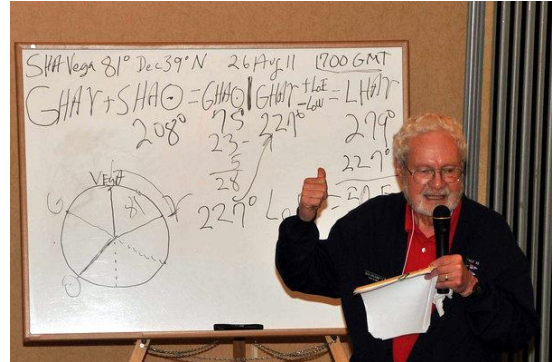 SHA Vega 81° Dec 39°N 26 Aug 11 1700 GMT
GHA♈+SHA☉=GHA☉|GHA♈ +LoE -LoW =LHA♈
208° 75° 227° 279°
23- 227°
5
28
227°
VEGA
81